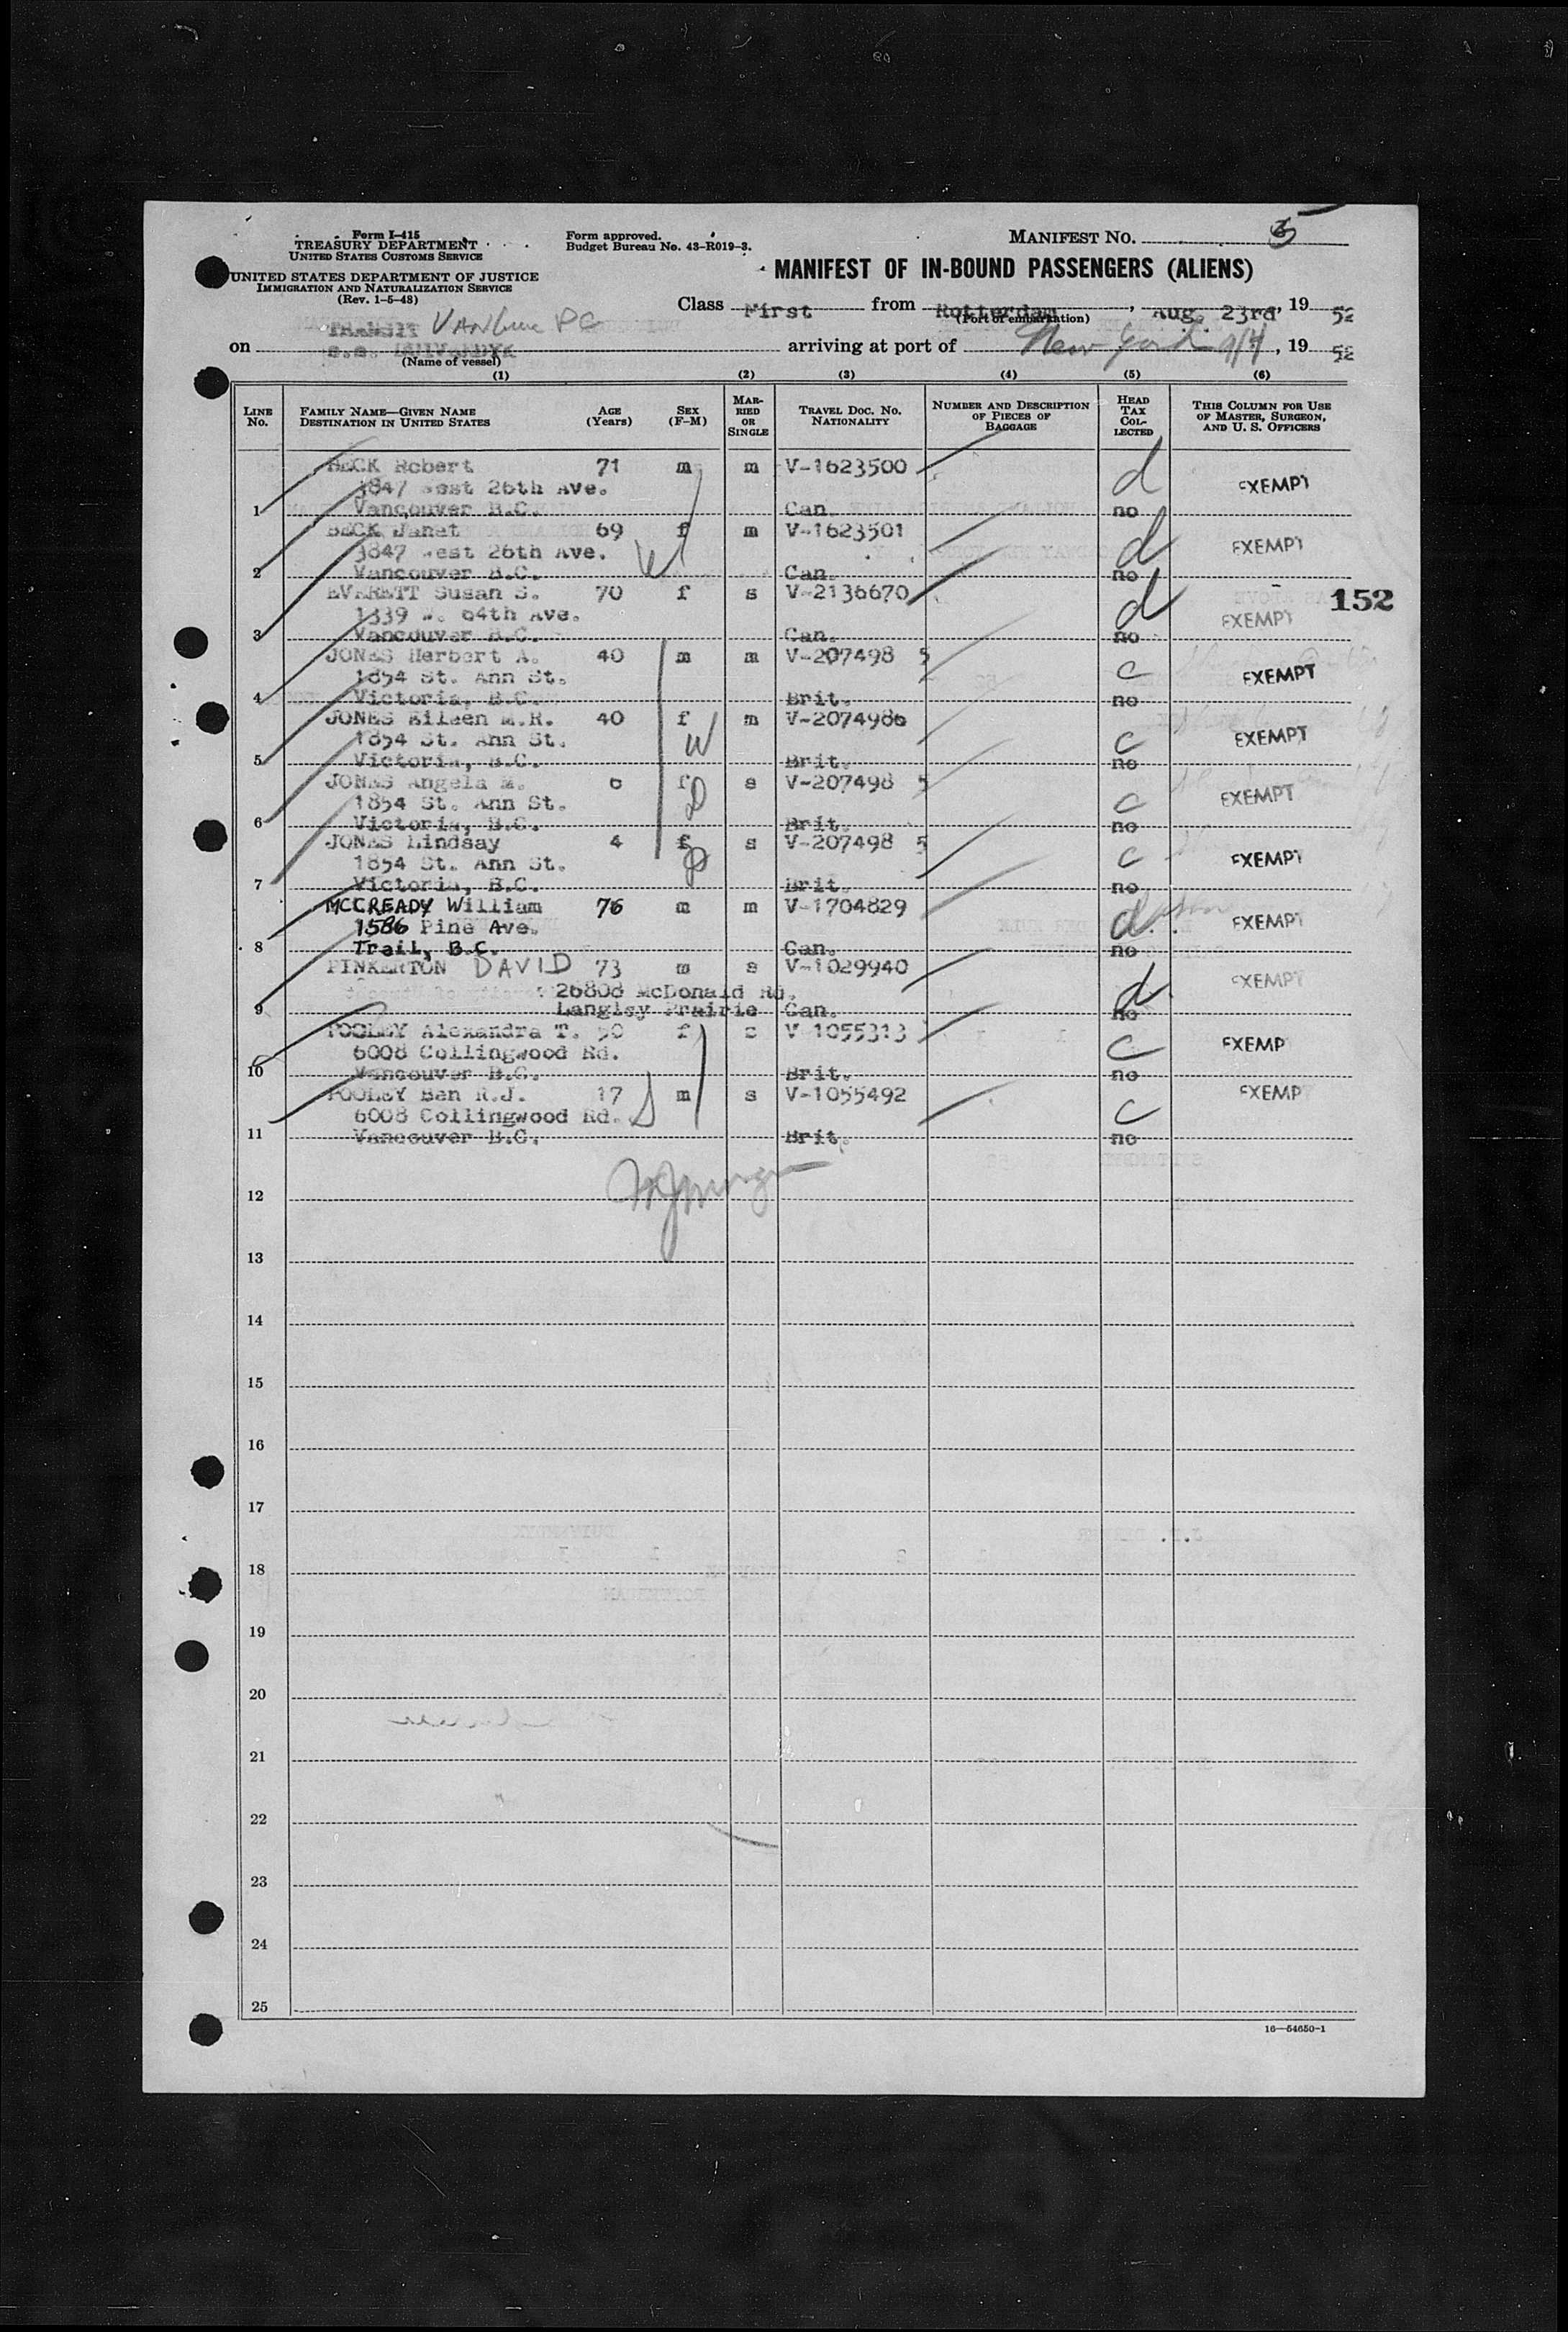 Form I-415
TREASURY DEPARTMENT
UNITED STATES CUSTOMS SERVICE
UNITED STATES DEPARTMENT OF JUSTICE
IMMIGRATION AND NATURALIZATION SERVICE
(Rev. 1-5-48)
Form approved.
Budget Bureau No. 43-R019-3.
MANIFEST NO. 5
MANIFEST OF IN-BOUND PASSENGERS (ALIENS)
Class First from Rotterdam, Aug. 23rd, 19 52
(Port of embarkation)
Transit
on s.s. arriving at port of New York 9/4, 19 52
(Name of vessel)
(1) (2) (3) (4) (5) (6)
LINE No. FAMILY NAME—GIVEN NAME DESTINATION IN UNITED STATES AGE (Years) SEX (F-M) MARRIED OR SINGLE TRAVEL DOC. NO. NATIONALITY NUMBER AND DESCRIPTION OF PIECES OF BAGGAGE HEAD TAX COLLECTED THIS COLUMN FOR USE OF MASTER, SURGEON, AND U. S. OFFICERS
BECK Robert 71 m m V-1623500 d EXEMPT
3847 West 26th Ave.
1 Vancouver B.C. Can. no
BECK Janet 69 f m V-1623501 d EXEMPT
3847 West 26th Ave. W
2 Vancouver B.C. Can. no
EVERETT Susan S. 70 f s V-2136670 d EXEMPT 152
1339 W. 64th Ave.
3 Vancouver B.C. Can. no
JONES Herbert A. 40 m m V-207498 5 c EXEMPT
1854 St. Ann St.
4 Victoria, B.C. Brit. no
JONES Eileen M.R. 40 f m V-2074986 c EXEMPT
1854 St. Ann St. W
5 Victoria, B.C. Brit. no
JONES Angela M. 6 f s V-207498 5 c EXEMPT
1854 St. Ann St.
6 Victoria, B.C. Brit. no
JONES Lindsay 4 f s V-207498 5 c EXEMPT
1854 St. Ann St.
7 Victoria, B.C. Brit. no
MCCREADY William 76 m m V-1704829 d EXEMPT
1586 Pine Ave.
8 Trail, B.C. Can. no
PINKERTON DAVID 73 m s V-1029940 d EXEMPT
26808 McDonald Rd.
9 Langley Prairie Can. no
POOLEY Alexandra T. 50 f s V-1055313 c EXEMP
6008 Collingwood Rd.
10 Vancouver B.C. Brit. no
POOLEY Ben R.J. 17 m s V-1055492 c EXEMP
6008 Collingwood Rd.
11 Vancouver B.C. Brit. no
12
13
14
15
16
17
18
19
20
21
22
23
24
25
16—54650-1